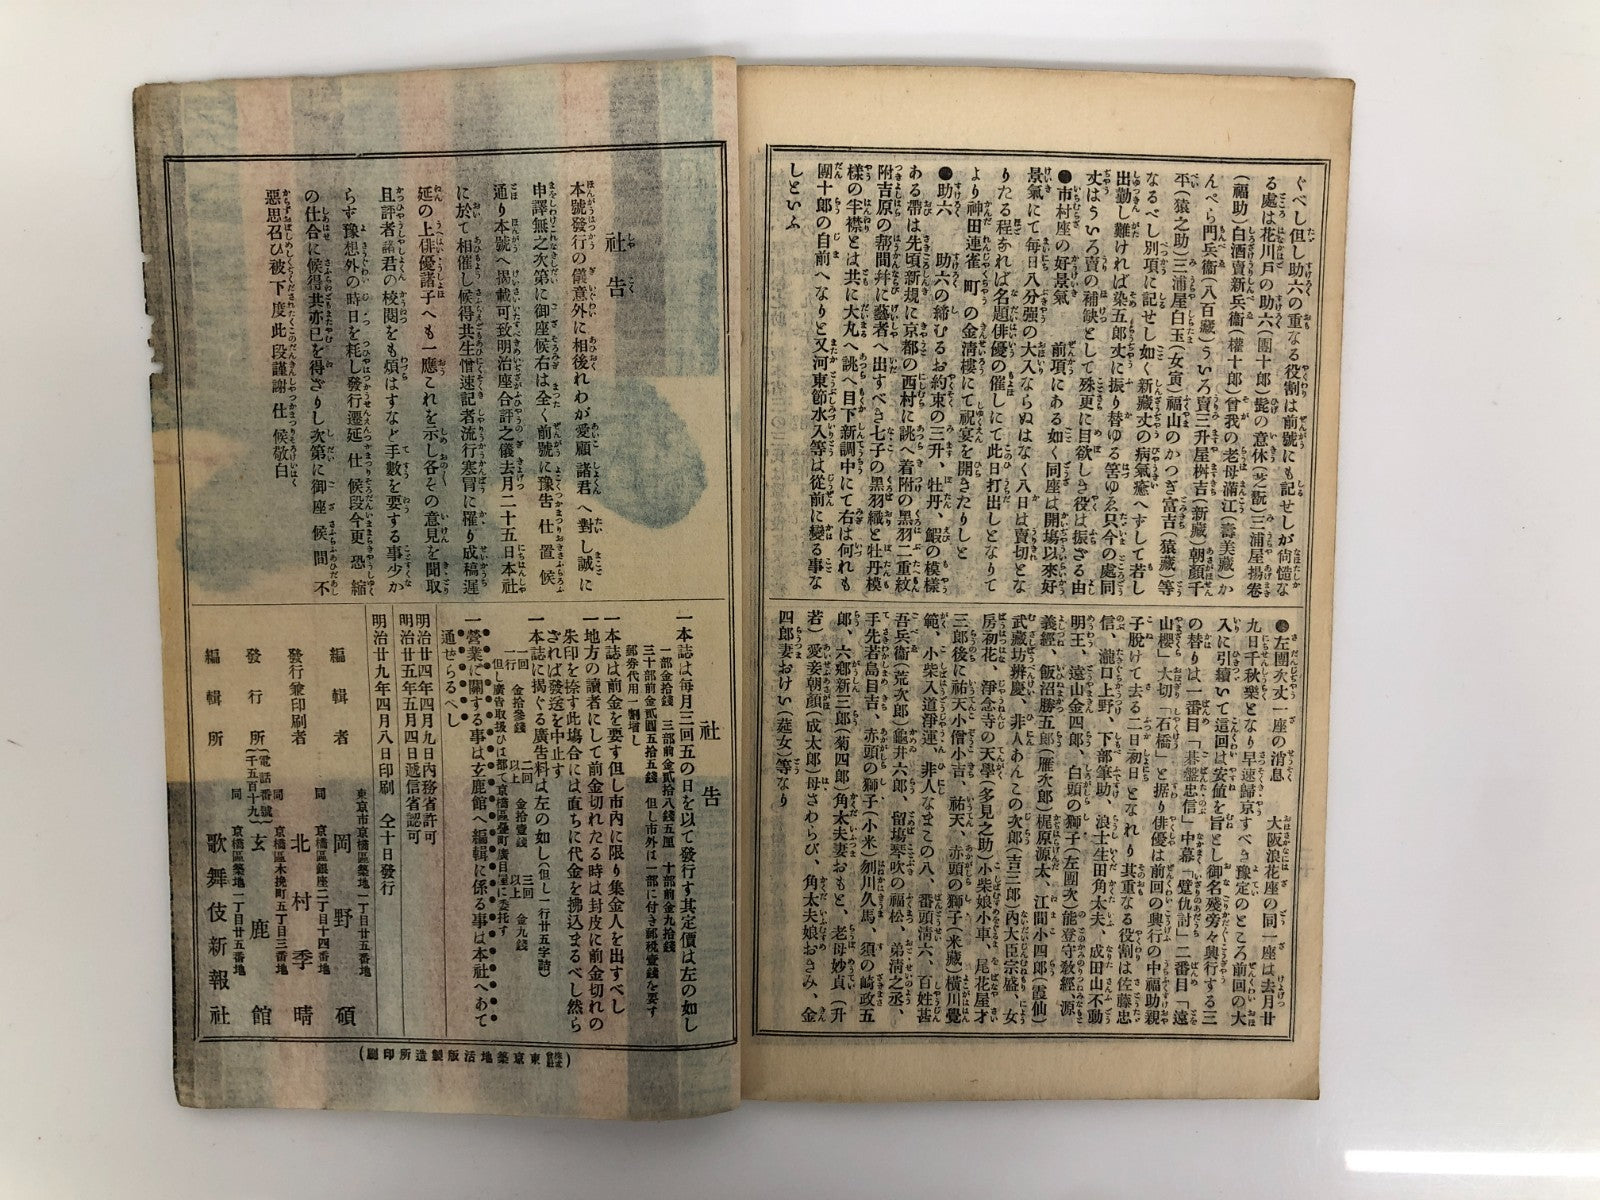 ぐべし但し助六の重なる役割は前號にも記せしが尚慥な
る處は花川戸の助六(團十郎)髭の意休(芝翫)三浦屋揚卷
(福助)白酒賣新兵衞(權十郎)曾我の老母滿江(壽美藏)か
んぺら門兵衞(八百藏)うゐろ賣三升屋桝吉(新藏)朝顔千
平(猿之助)三浦屋白玉(女寅)福山のかつぎ富吉(猿藏)等
なるべし別項に記せし如く新藏丈の病氣癒へずして若し
出勤し難ければ染五郎丈に振り替ゆる筈ゆゑ只今の處同
丈はうゐろ賣の補缺として殊更に目欲しき役は振ざる由
●市村座の好景氣　前項にある如く同座は開場以來好
景氣にて毎日八分強の大入ならぬはなく八日は賣切とな
りたる程なれば名題俳優の催しにて此日打出しとなりて
より神田連雀町の金清樓にて祝宴を開きたりしと
●助六　助六の締むるお約束の三升、牡丹、鰕の模樣
ある帶は先頃新規に京都の西村に誂へ着附の黑羽二重紋
附吉原の幇間并に藝者へ出すべき七子の黑羽織と牡丹模
樣の半襟とは共に大丸へ誂へ目下新調中にて右は何れも
團十郎の自前へなりと又河東節水入等は從前に變る事な
しといふ
●左團次丈一座の消息　大阪浪花座の同一座は去月廿
九日千秋樂となり早速歸京すべき豫定のところ前回の大
入に引續いて這回は安値を旨とし御名殘旁々興行する三
の替りは一番目「碁盤忠信」中幕「躄仇討」二番目「遠
山櫻」大切「石橋」と据り俳優は前回の興行の中福助親
子脱けて去る二日初日となれり其重なる役割は佐藤忠
信、瀧口上野、下部筆助、浪士生田角太夫、成田山不動
明王、遠山金四郎、白頭の獅子(左團次)能登守敎經、源
義經、飯沼勝五郎(雁次郎)梶原源太、江間小四郎(霞仙)
武藏坊辨慶、非人あんこの次郎(吉三郎)内大臣宗盛、女
房初花、淨念寺の天學(多見之助)小柴娘小車、尾花屋才
三郎後に祐天小僧小吉、祐天、赤頭の獅子(米藏)横川覺
範、小柴入道淨蓮、非人なまこの八、番頭清六、百姓甚
吾兵衞(荒次郎)龜井六郎、留塲琴吹の福松、弟淸之丞、
手先若島目吉、赤頭の獅子(小米)刎川久馬、須の崎政五
郎、六鄕新三郎(菊四郎)角太夫妻おもと、老母妙貞(升
若)愛妾朝顔(成太郎)母さわらび、角太夫娘おさみ、金
四郎妻おけい(莚女)等なり
社告
本號發行の儀意外に相後れわが愛顧諸君へ對し誠に
申譯無之次第に御座候右は全く前號に豫告仕置候
通り本號へ揭載可致明治座合評之儀去月二十五日本社
に於て相催し候得共生憎速記者流行寒冒に罹り成稿遲
延の上俳優諸子へも一應これを示し各その意見を聞取
且評者諸君の校閲をも煩はすなど手數を要する事少か
らず豫想外の時日を耗し發行遷延仕候段今更恐縮
の仕合に候得共亦已を得ざりし次第に御座候間不
惡思召ひ被下度此段謹謝仕候敬白
社告
一本誌は毎月三回五の日を以て發行す其定價は左の如し
一部金拾錢　三部前金貳拾八錢五厘　十部前金九拾錢
三十部前金貳圓五拾五錢　但し市外は一部に付き郵税壹錢を要す
郵券代用一割增し
一本誌は前金を要す但し市内に限り集金人を出すべし
一地方の讀者にして前金切れたる時は封皮に前金切れの
朱印を捺す此塲合には直ちに代金を拂込まるべし然ら
ざれば發送を中止す
一本誌に揭ぐる廣告料は左の如し(但し一行廿五字詰)
一回　金拾參錢　二回以上　金拾壹錢　三回以上　金九錢
一行
但し廣告取扱ひは都て京橋區疊町廣目屋に委托す
一營業に關する事は玄鹿館へ編輯に係る事は本社へあて
通せらるへし
明治廿四年四月九日内務省許可
明治廿五年五月四日遞信省認可
明治廿九年四月八日印刷　仝十日發行
東京市京橋區築地一丁目廿五番地
編輯者　岡野碩
同　京橋區銀座二丁目十四番地
發行兼印刷者　北村季晴
同　京橋區木挽町五丁目三番地
發行所　(電話番號千五百十九)　玄鹿館
同　京橋區築地一丁目廿五番地
編輯所　歌舞伎新報社
(株式會社東京築地活版製造所印刷)